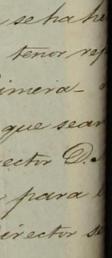 se ha he
tenor, re
imera
que sean
ector D.
para
irector su